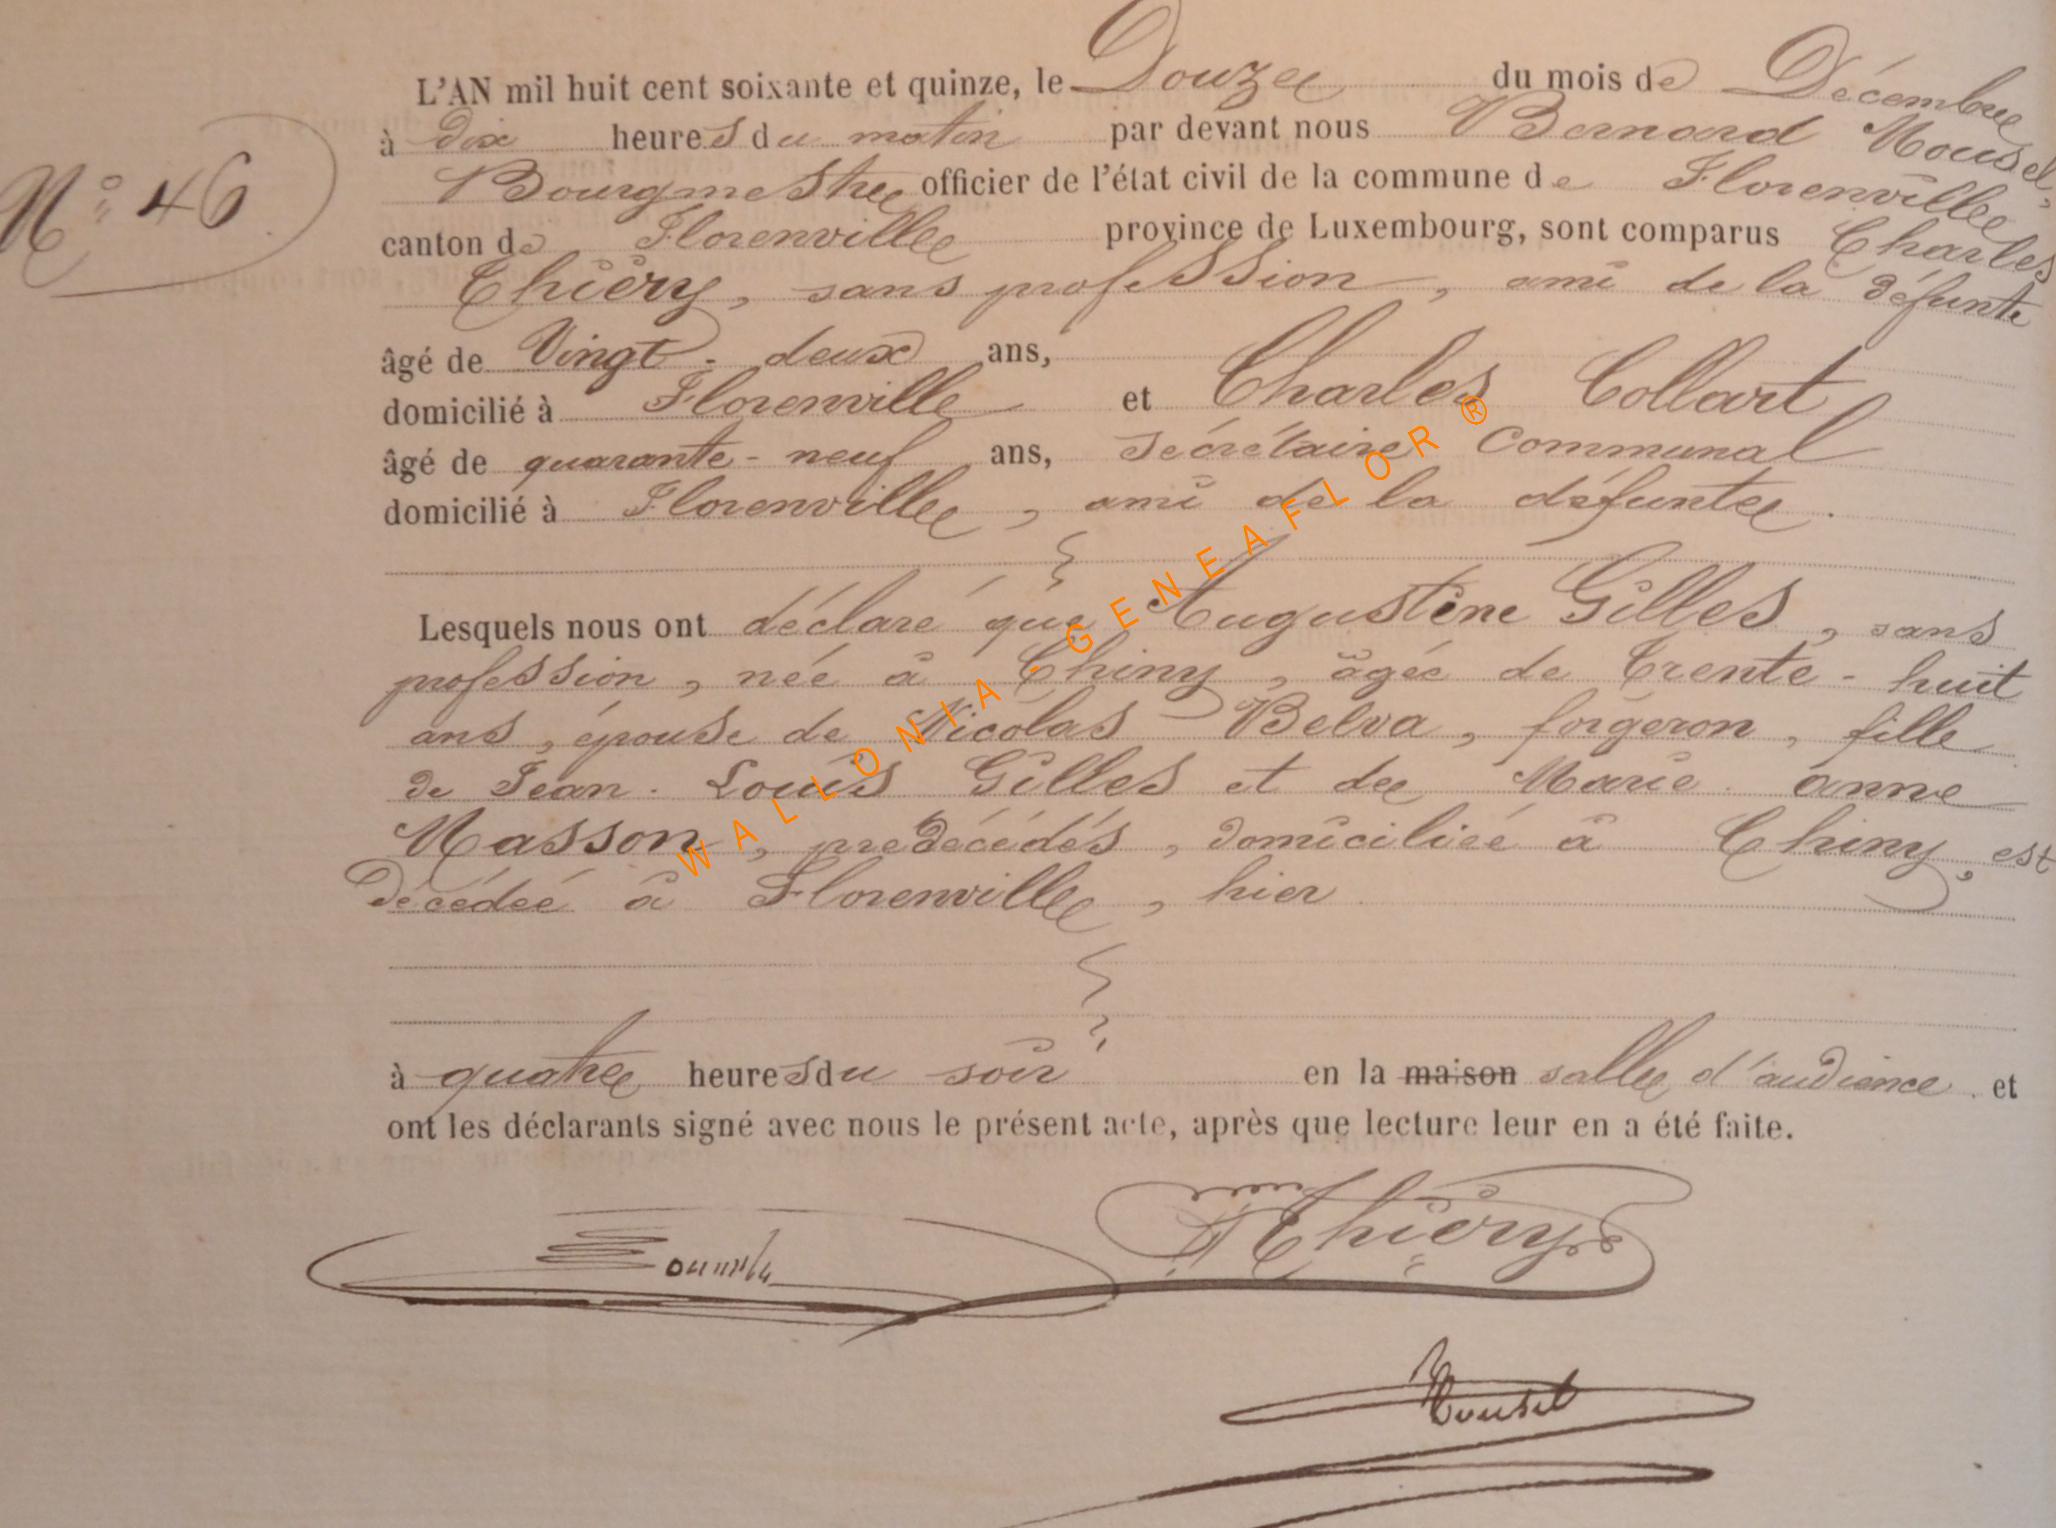 L'AN mil huit cent soixante et quinze, le Douze du mois de Décembre
à dix heures du matin par devant nous Bernard Mousel,
Nº 46
Bourgmestre officier de l'état civil de la commune de Florenville
canton de Florenville province de Luxembourg, sont comparus Charles
Thiéry, sans profession, ami de la défunte
âgé de Vingt-deux ans,
domicilié à Florenville et Charles Collart
âgé de quarante-neuf ans, secrétaire communal
domicilié à Florenville, ami de la défunte.
Lesquels nous ont déclaré que Augustine Gilles, sans
profession, née à Chiny, âgée de Trente-huit
ans, épouse de Nicolas Belva, forgeron, fille
de Jean-Louis Gilles et de Marie-anne
Masson, predécédés, domiciliée à Chiny, est
décédée à Florenville, hier
à quatre heures du soir en la maison salle d'audience et
ont les déclarants signé avec nous le présent acte, après que lecture leur en a été faite.
Thiéry
Mousel
WALLONIA-GENEAFLOR®